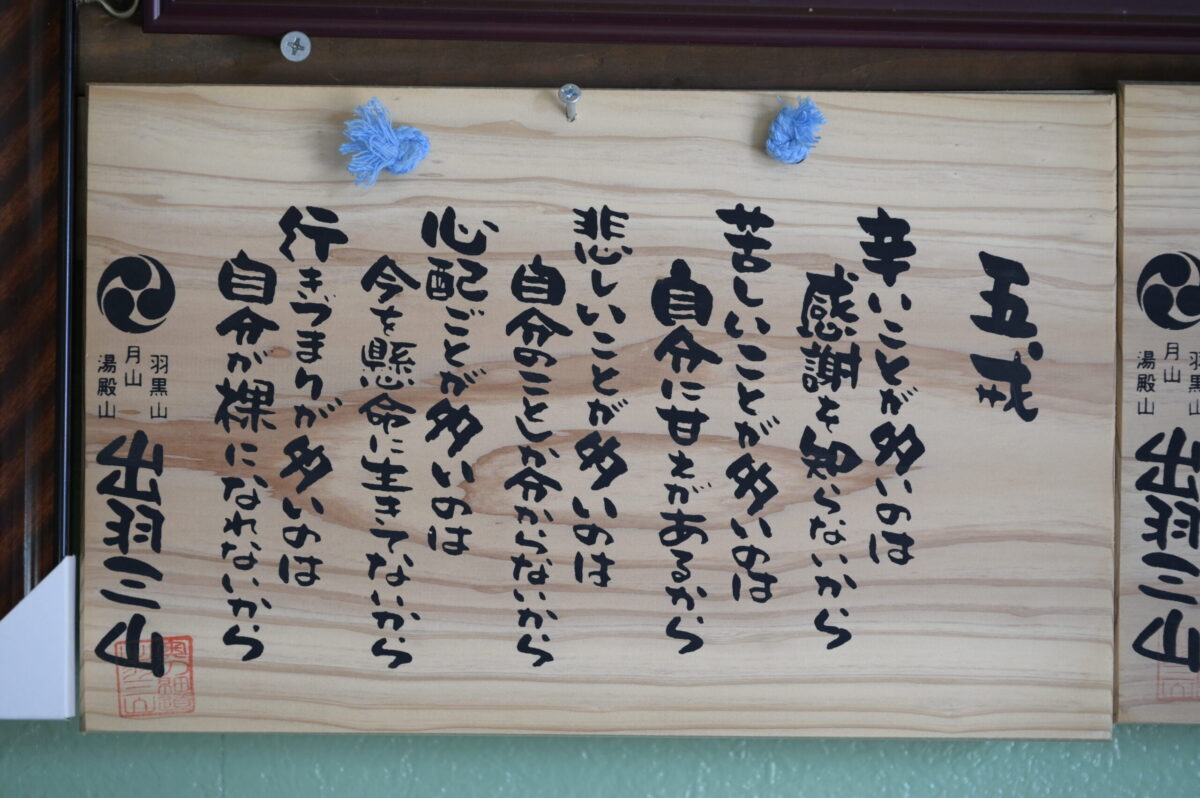 五戒
辛いことが多いのは
感謝を知らないから
苦しいことが多いのは
自分に甘えがあるから
悲しいことが多いのは
自分のことしか分からないから
心配ごとが多いのは
今を懸命に生きてないから
行きづまりが多いのは
自分が裸になれないから
羽黒山
月山
湯殿山
出羽三山
羽黒山
月山
湯殿山
出羽三山